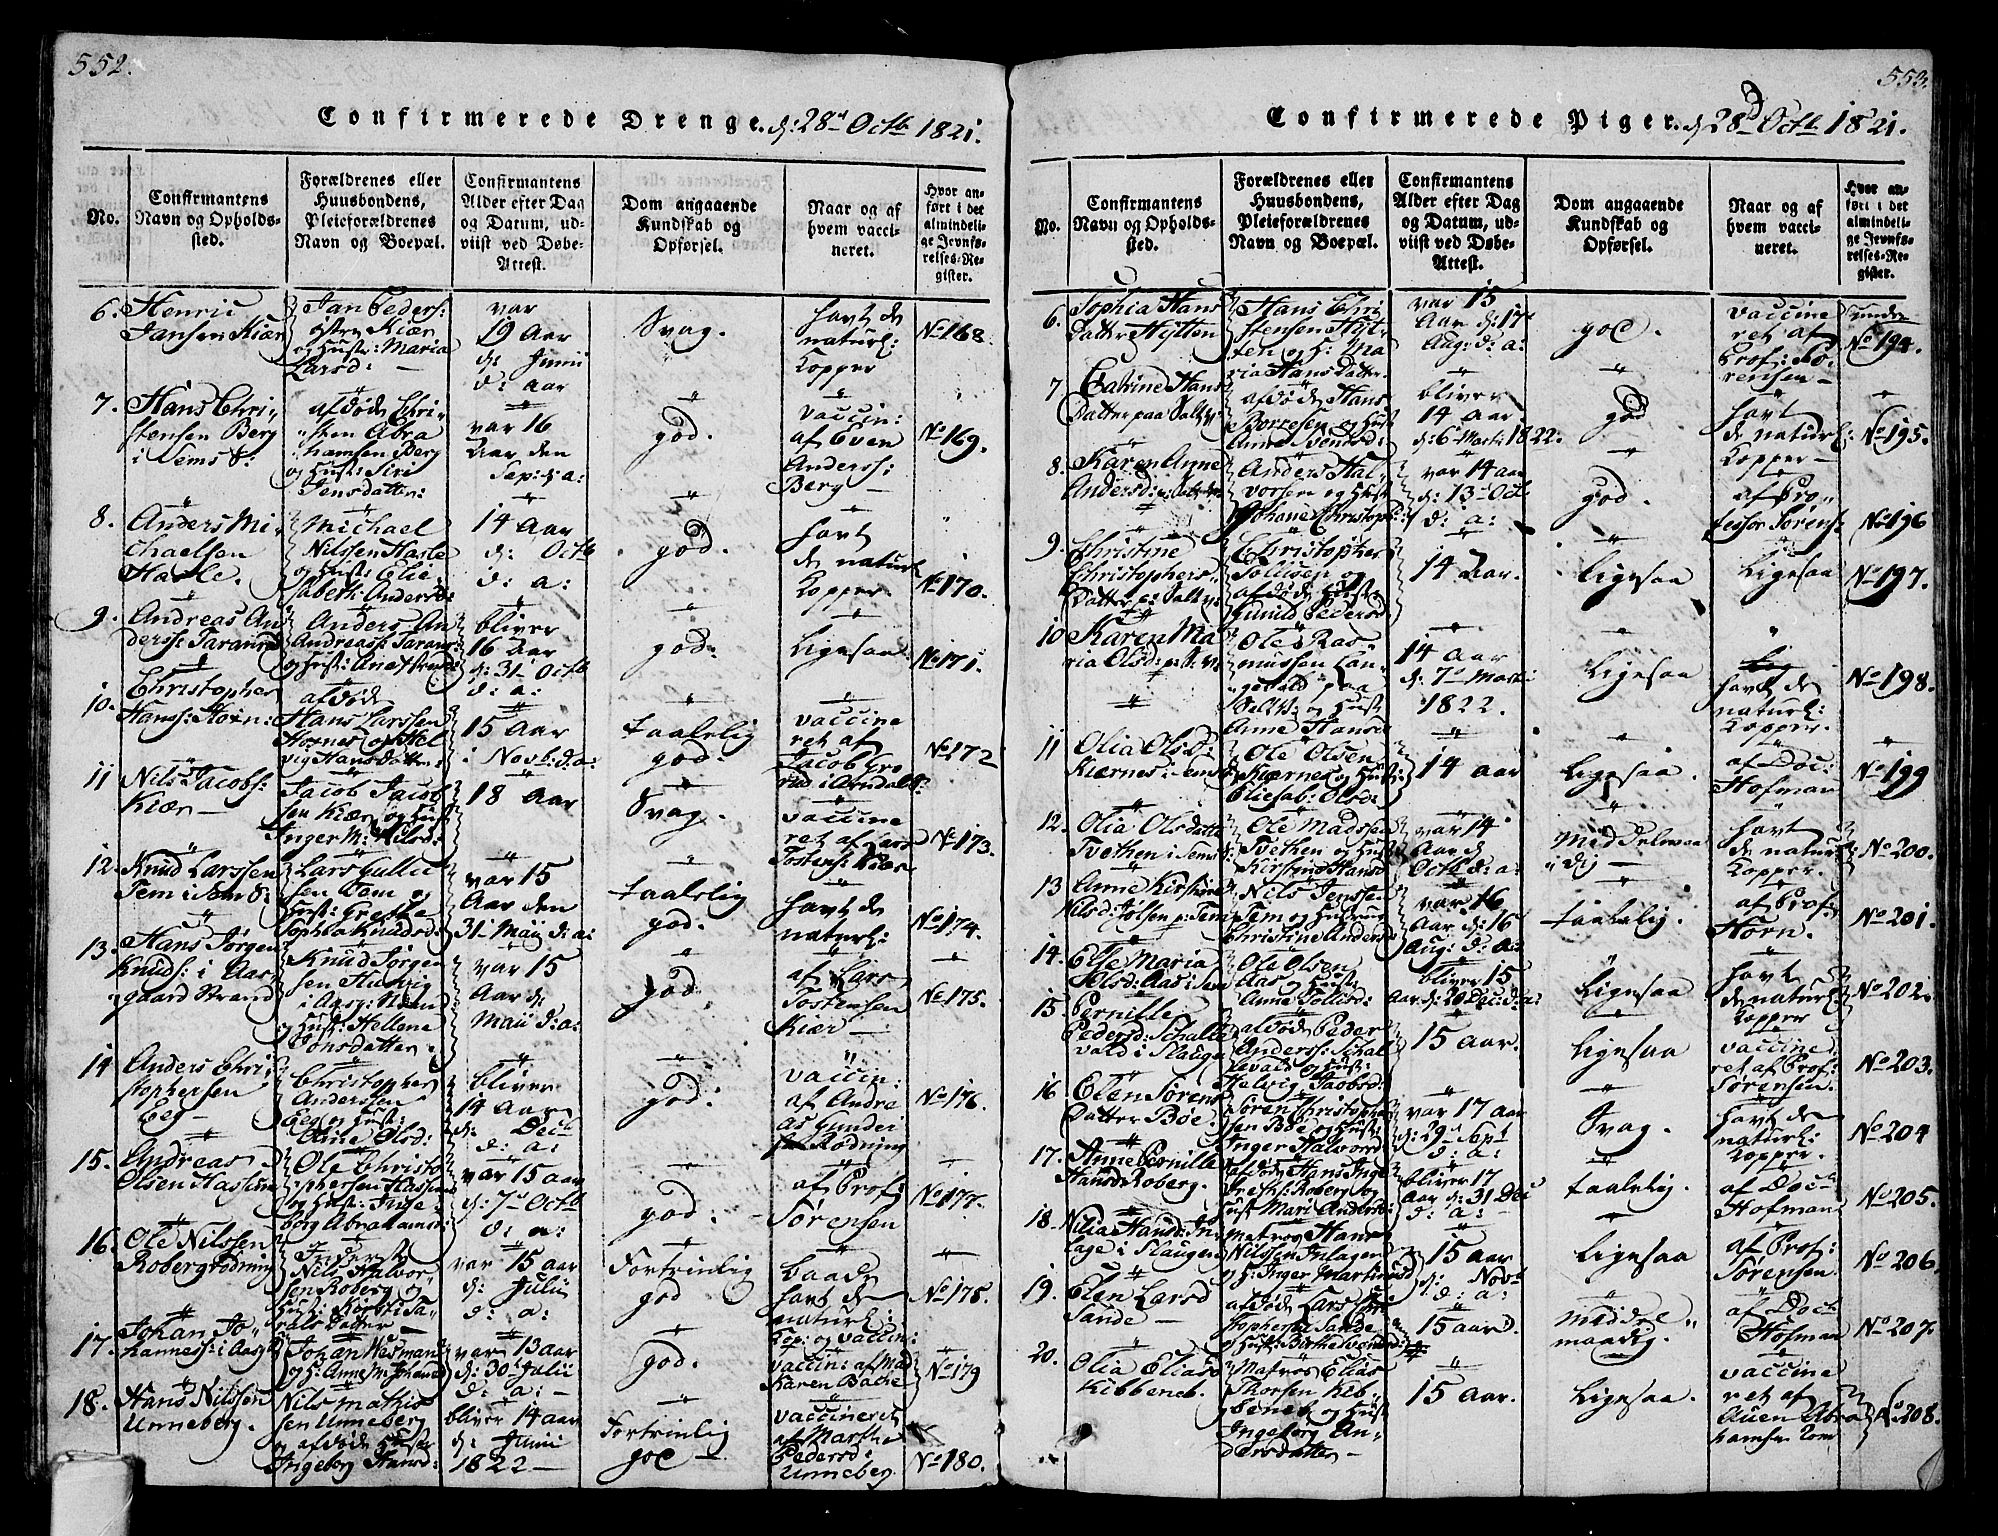 552.
Confirmerede Drenge. d: 28d Octb 1821.
No.
Confirmantens
Navn og Opholds-
sted.
Forældrenes eller
Huusbondens,
Pleieforældrenes
Navn og Boepæl.
Confirmantens
Alder efter Dag
og Datum, ud-
viist ved Døbe-
Attest.
Dom angaaende
Kundskab og
Opførsel.
Naar og af
hvem vacci-
neret.
Hvor an-
ført i det
almindeli-
ge Jevnfø-
relses-Re-
gister.
6. Henric
Jansen Kiær
Jan Peders:
østre Kiær
og Hustr: Maria
Larsd: —
var
19 Aar
d: Junii
d: aar
Svag.
havt de
naturl:
Kopper
No 168.
7. Hans Chri-
stensen Berg
i Sems S:
afdøde Chri-
sten Abra
hamsen Berg
og Hust: Siri
Jensdatter:
var 16
Aar den
Sep: d: a:
god.
vaccin:
af Even
Anderss:
Berg —
No 169.
8. Anders Mi-
chaelsen
Hasle.
Michael
Nilssen Hasle
og Hust: Elie-
sabeth Andersd:
14 Aar
d: Octb
d: a:
god.
havt
de naturl
Kopper
No 170.
9. Andreas An
derss: Tarann
Anders An
Andreass:
og Hust:
bliver
16 Aar
d: 31- Octb
d: a:
god:
Ligesaa:
No 171.
10. Christopher
Hanss: Horn:
afdøde
Hans Larssen
Hornes og Hel
vig HansDatter:
15 Aar
i Novb: d: a:
taalelig
god:
vaccine
ret af
Jacob
i Arndal
No 172
11 Nils Jacobs:
Kiær —
Jacob Jacob
sen Kiær og Hust
Inger M: Nilsd:
18 Aar
Svag.
vaccine
ret af Lars
Tostens: Kiær
No 173.
12. Knud Larssen
Tem i Sem S:
Lars Gullic
sen Tem og
Hust: Grethe
Sophia Knudsd:
var 15
Aar den
31- Maii d: a:
taalelig
god:
havt de
naturl:
No 174.
13. Hans Jørgen
Knuds: i Aas-
gaard Strand
Knud Jørgen
sen
i Aasg:
og Hust: Hellene
Tønsdatter.
var 15
Aar d:
Maii d: a:
god.
af Lars
Tostensen
Kiær —
No 175.
14 Anders Chri
stophersen
Eeg —
Christopher
Andersen
Eeg og Hust:
Ane Olsd:
bliver
14 Aar
d: Decb
d: a:
god:
vaccin:
af Andre
as Gunder
Rødning
No 176.
15. Andreas
Olsen Hassum
Ole Christo
phersen Hassum
og Hust: Inge
borg Abrahamsd:
var 15 aar
d: 7d Octb
d: a:
god.
af Prof:
Sørensen
No 177.
16. Ole Nilssen
Robergrødning
Inderst
Nils Halvor-
sen Roberg og
Hust: Kirsti Ta-
ralsDatter —
var 15 aar
d: Julii
d: a:
Fortrinlig
god
baade
havt de
naturl:
Kop: og vaccin:
No 178.
17. Johan Jo-
hanness: i Aasg:
Johan Wesman
og H: Anne M: Johansd
var 13 aar
d: 30- Julii
d: a: —
god.
vaccin: af Mad
Karen Bache
No 179
18. Hans Nilssen
Unneberg.
Nils Mathis
sen Unneberg
og afdøde Hustr
Ingeborg Hansd:
bliver 14 aar
d: Junii
1822 —
Fortrinlig
god —
vaccineret
af Marthe
Pedersd:
Unneberg
No 180.
553.
Confirmerede Piger. d 28d Octb 1821.
No.
Confirmantens
Navn og Opholds-
sted.
Forældrenes eller
Huusbondens,
Pleieforældrenes
Navn og Boepæl.
Confirmantens
Alder efter Dag
og Datum, ud-
viist ved Døbe-
Attest.
Dom angaaende
Kundskab og
Opførsel.
Naar og af
hvem vacci-
neret.
Hvor an-
ført i det
almindeli-
ge Jevnfø-
relses-Re-
gister.
6. Sophia Hans
Datter Hylten
Hans Chri
stensen Hyl-
ten og H: Ma
ria HansDatter.
var 15
Aar d: 17d
Aug: d: a:
god.
vaccine
ret af
Prof: Sø-
rensen —
under
No 194.
7 Catrine Hans
Datter paa Valløe
afdøde Hans
Borresen og Hust
Anne
bliver
14 aar
d: 6d Marti 1822.
god
havt
de naturl:
Kopper —
No 195.
8. Karen Anne
Andersd:
Anders Hal-
vorsen og Hust
Johane Christoph:
var 14 aar
d: 13d Oct
d: a:
god.
af Pro-
fessor Sørens:
No 196
9. Christine
Christophers
Datter
Christopher
og
afdøde Hust:
Gunild Pedersd
14 Aar.
Ligesaa
Ligesaa
No 197.
10 Karen Ma
ria Olsd:
Ole Ras-
mussen Lan-
gevald paa
og Hust
Anne Hansd
14 aar
d: 7d Marti
1822.
Ligesaa
havt de
naturl:
Kopper.
No 198.
11 Olia Olsd:
Kiærnes i Sem
Ole Olsen
Kiærnes og Hust:
Eliesab: Olsd:
14 aar
Ligesaa.
af Doc:
Hofman
No 199
12. Olia Olsdatter
Tvethen i Sems
Ole Madssen
Tvethen og Hust
Kirstine Hansd
var 14
Aar d
Octb d: a:
Middelmaa
dig —
havt
de naturl:
Kopper.
No 200.
13 Anne Kirstine
Nilsd: Jølsen p: Tem
Nils Jenssen
Tem og Hustrue
Christine Anders
var 16
Aar d: 16
Aug: d: a:
taalelig.
af Prof:
Horn.
No 201.
14. Else Maria
Olsd: Aas i Sem
Ole Olsen
Aas og Hust:
Anne
bliver 15
Aar d: 20 Dec: d: a:
Ligesaa
havt
de naturl:
Kopper
No 202.
15 Pernille
Pedersd: Schalle
vald i Slaugen
afdøde Peder
Anderss: Schal
levald og Hust:
Helvig Jacobsd:
15 aar.
Ligesaa
vaccine
ret af Prof:
Sørensen.
No 203.
16 Elen Sørens
Datter Bøe.
Søren Christopher
sen Bøe og Hust:
Inger Halvorsd
var 17 aar
d: 29d Sept
d: a:
Svag.
havt de
naturl:
Kopper.
No 204
17. Anne Pernille
Hansd: Roberg.
afdøde Hans Inge
Roberg og
Hust: Mari Andersd:
bliver 17
aar d: 31 Dec
d: a:
taalelig.
af Doc
Hofman
No 205.
18. Nilia Hansd: In
lage i Slaugen
Matros Hans
Nilssen Inlagen
og H: Inger Martinusd
15 aar
d: Novb
d: a:
Ligesaa
af Prof:
Sørensen
No 206.
19. Elen Larsd
Sande —
afdøde Lars Chri
stophersen Sande
og Hust:
15 aar.
Middel-
maadig.
af Doct
Hofman
No 207.
20. Olia Eliasd
Kibbeneb.
Matros Elias
Thorsen Kib-
beneb og Hust
Ingeborg An-
dersdatter —
15 aar.
Ligesaa
vaccine
ret af
Auen Abra
hamsen
No 208.